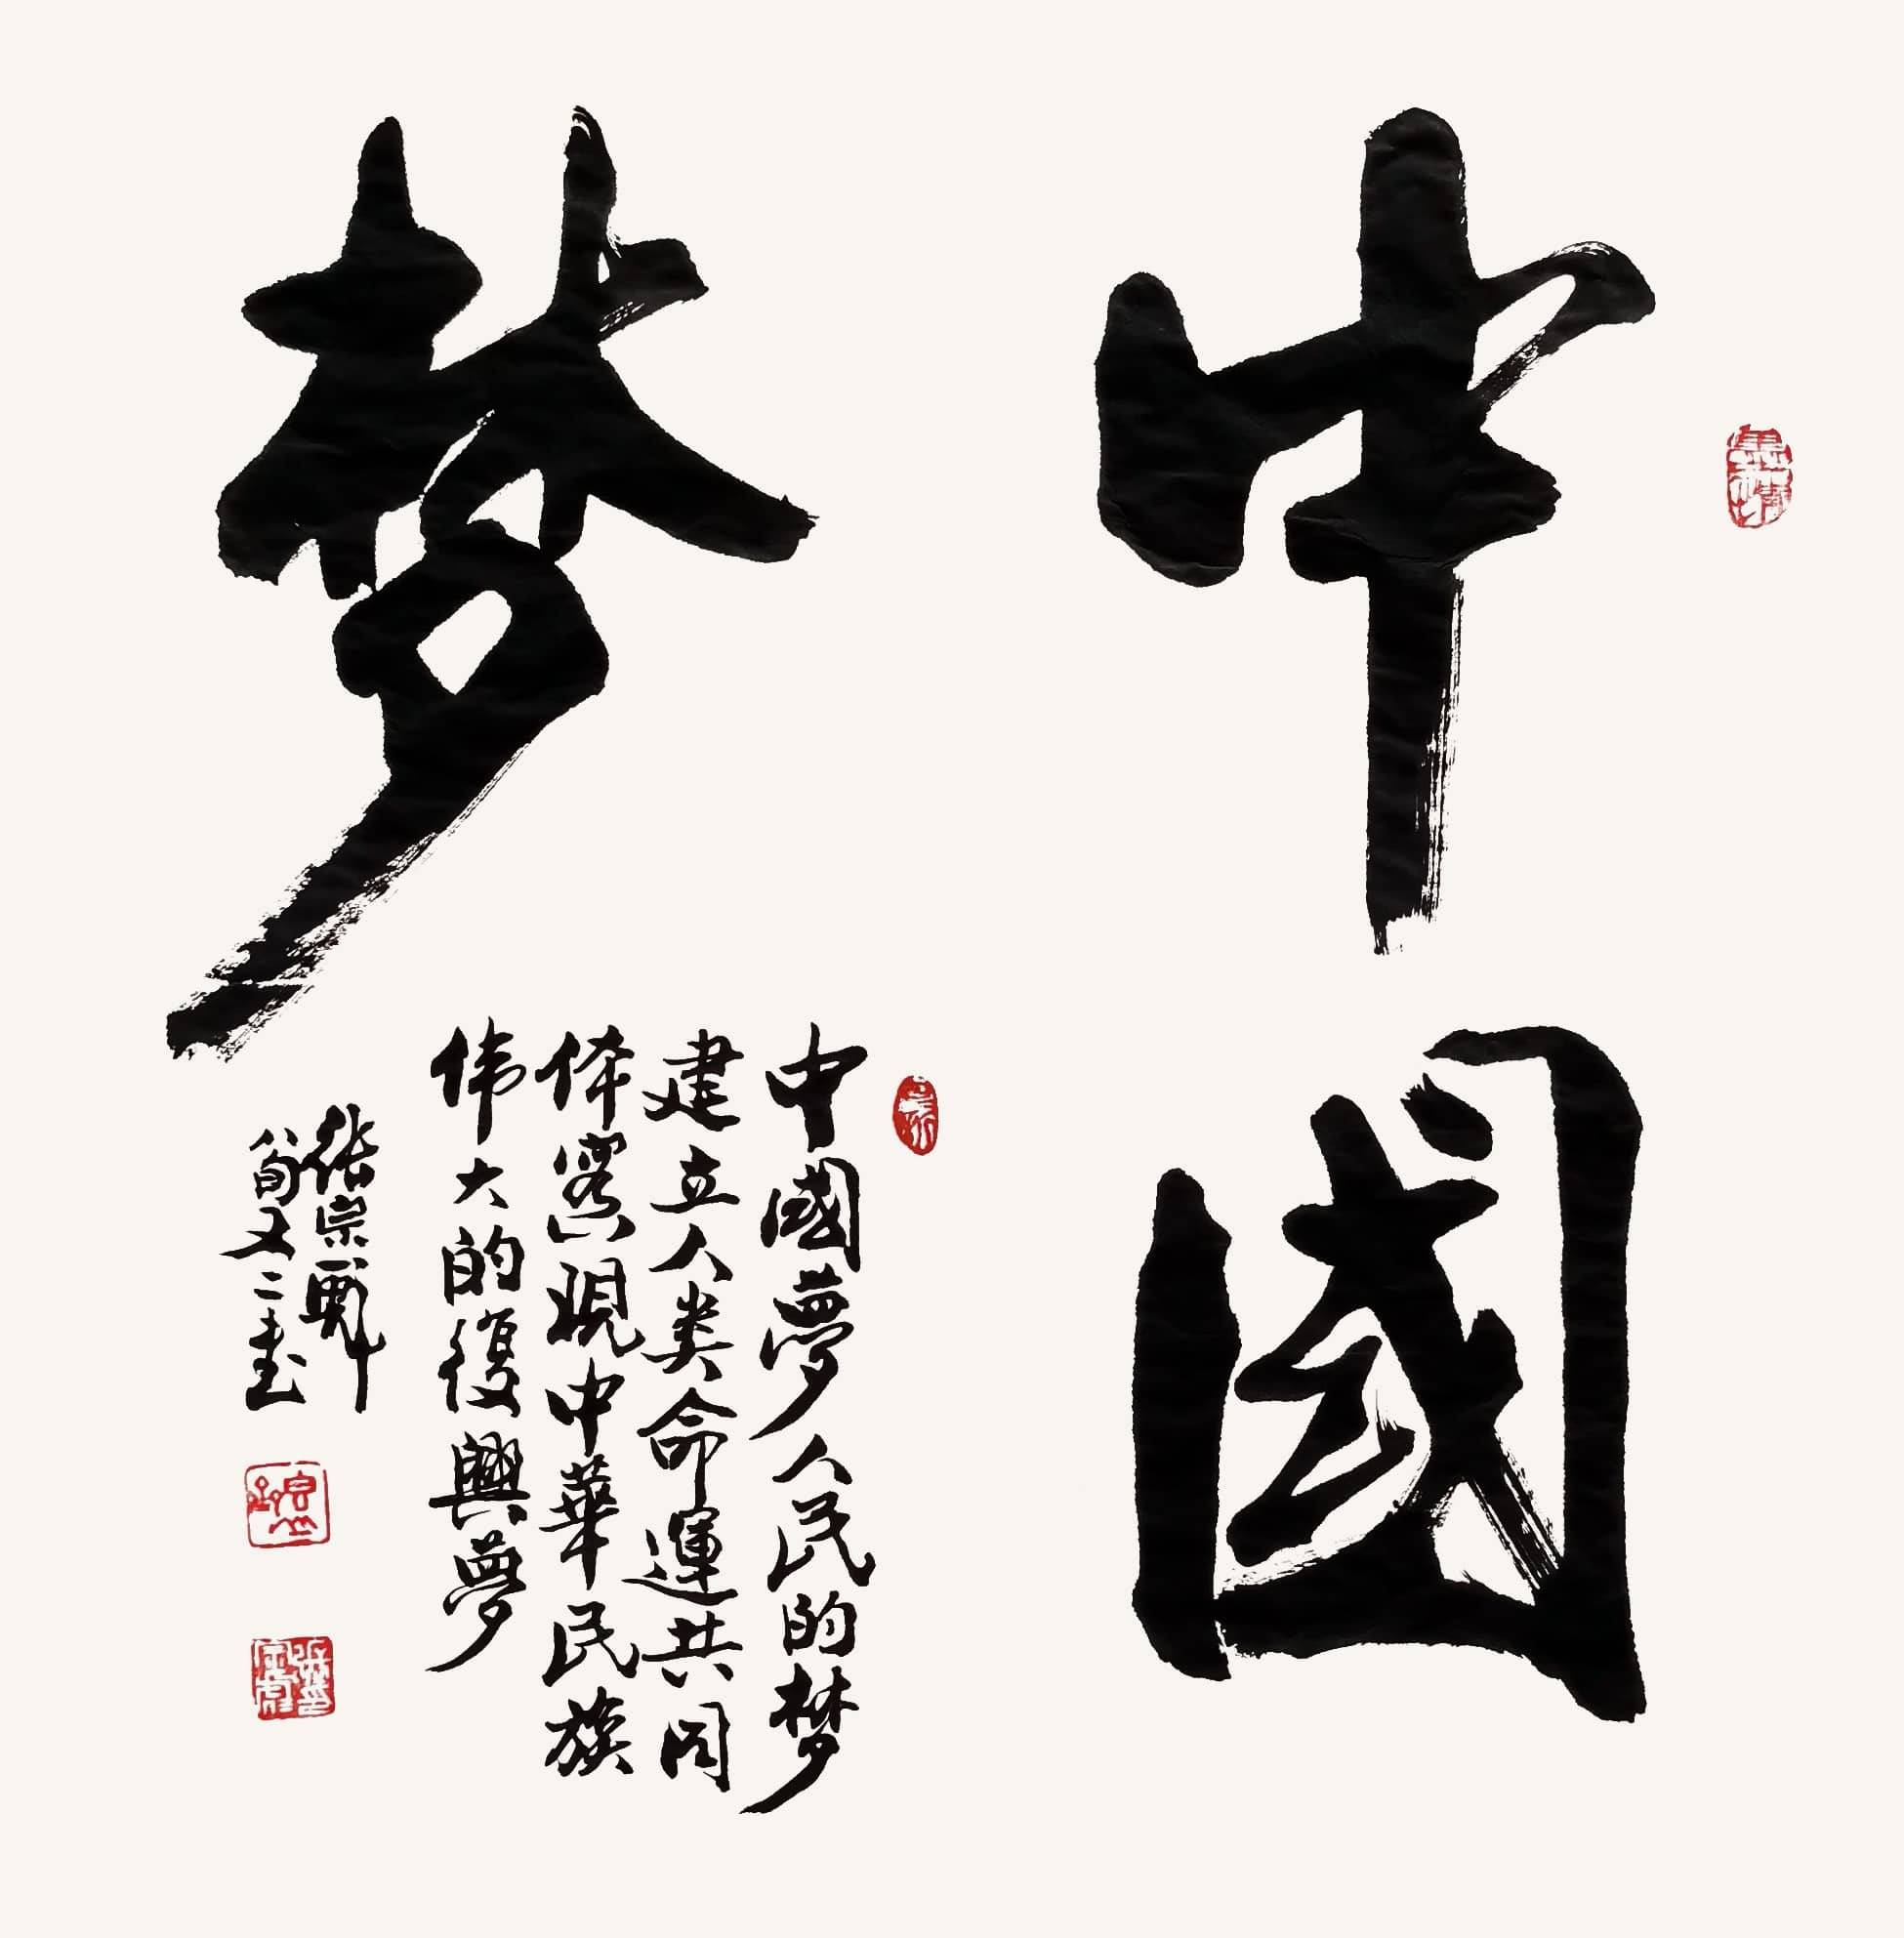 中國
梦
中國夢人民的梦
建立人类命運共同
体實現中華民族
伟大的復興夢
张宗
八旬又二書